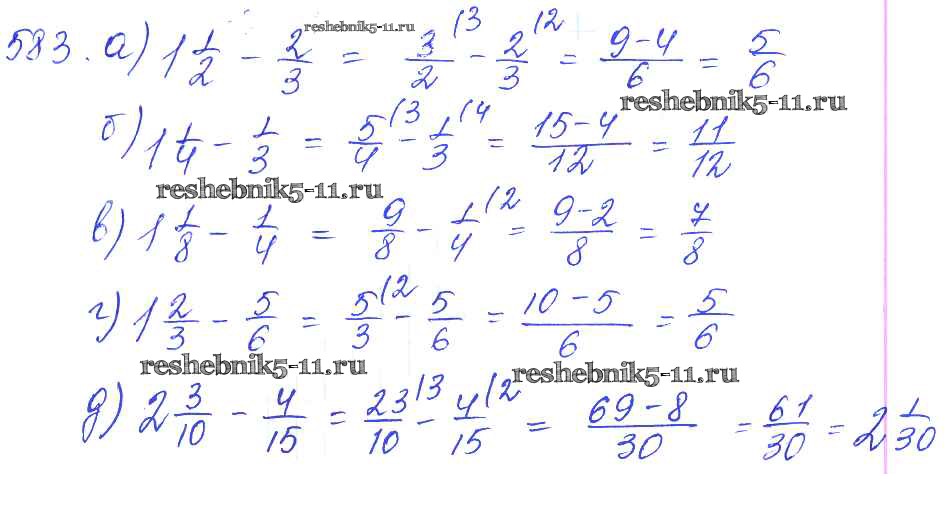 reshebnik5-11.ru
583. а) 1 1/2 - 2/3 = 3/2 (3 - 2/3 (2 = 9-4/6 = 5/6
reshebnik5-11.ru
б) 1 1/4 - 1/3 = 5/4 (3 - 1/3 (4 = 15-4/12 = 11/12
reshebnik5-11.ru
в) 1 1/8 - 1/4 = 9/8 - 1/4 (2 = 9-2/8 = 7/8
г) 1 2/3 - 5/6 = 5/3 (2 - 5/6 = 10-5/6 = 5/6
reshebnik5-11.ru reshebnik5-11.ru
д) 2 3/10 - 4/15 = 23/10 (3 - 4/15 (2 = 69-8/30 = 61/30 = 2 1/30